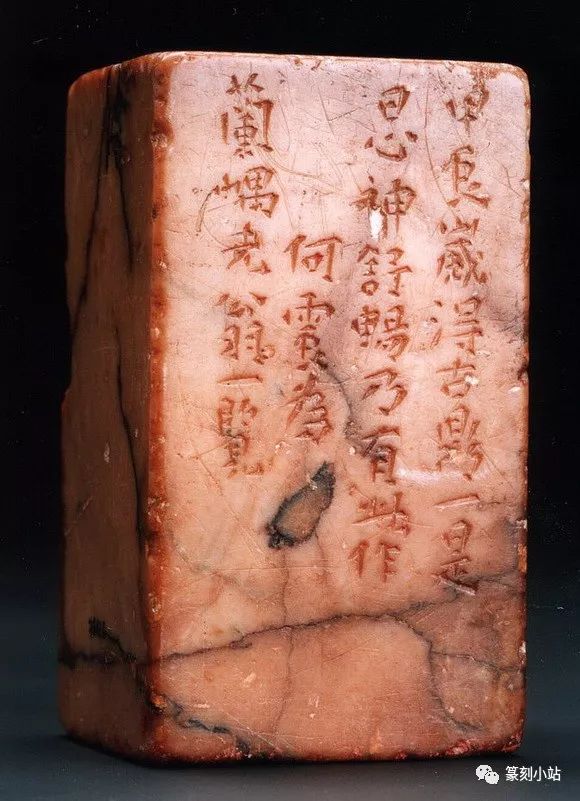 甲辰歲得古鼎一是
日心神舒暢乃有此作
何震為
蘭嵎老翁一覽
篆刻小站